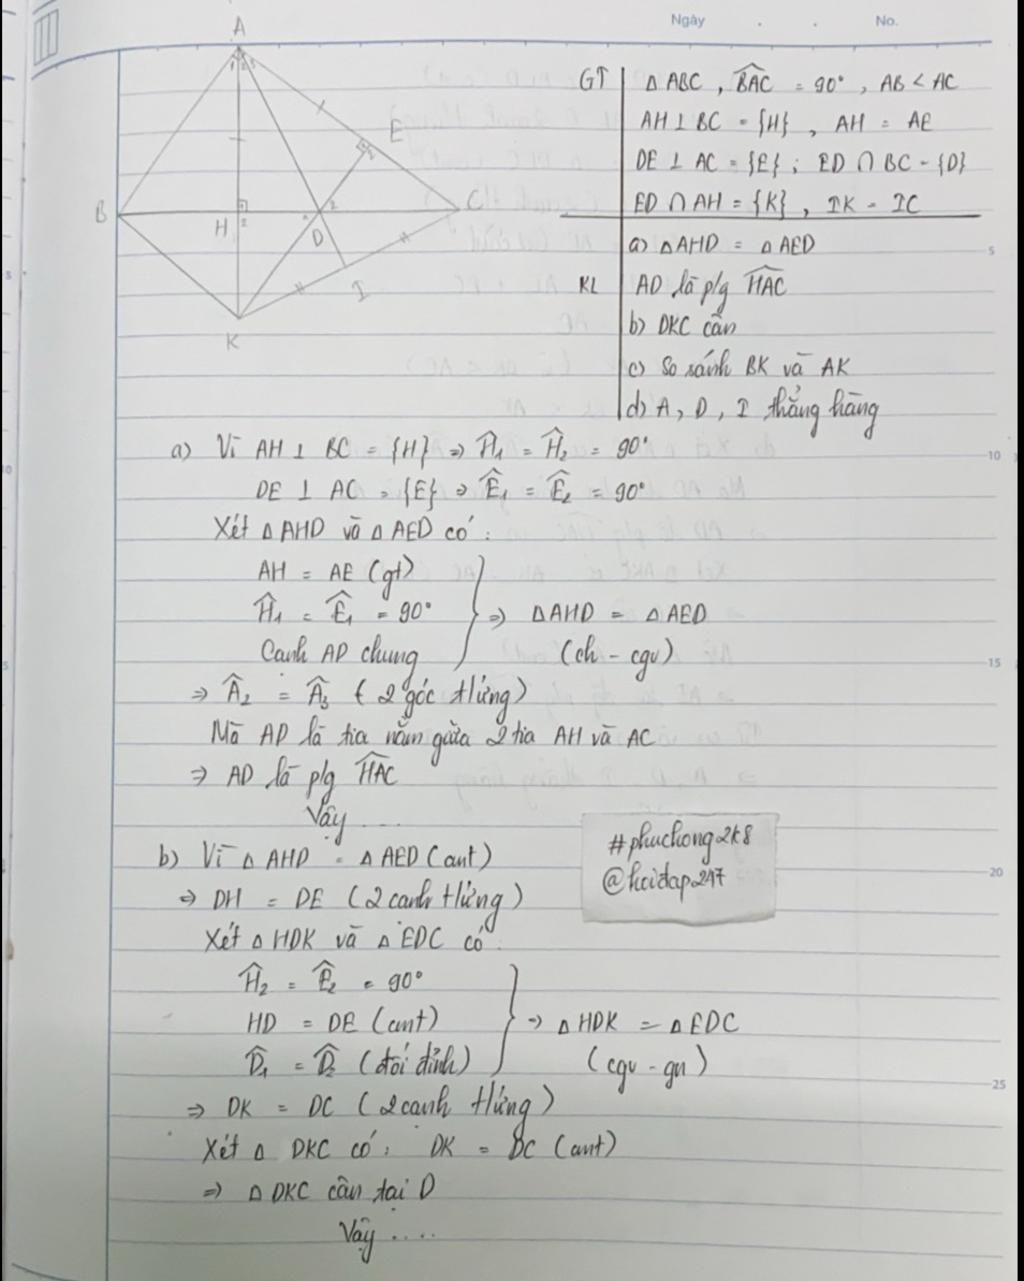 Ngày . . No.
A
1 2 3
E
2
B
H
2
D
2
C
I
K
GT | Δ ABC , BAC = 90° , AB < AC
AH ⊥ BC = {H} , AH = AE
DE ⊥ AC = {E} ; ED ∩ BC = {D}
ED ∩ AH = {K} , IK = IC
KL | a) Δ AHD = Δ AED
AD là p/g HAC
b) DKC cân
c) So sánh BK và AK
d) A, D, I thẳng hàng
a) Vì AH ⊥ BC = {H} => Ĥ₁ = Ĥ₂ = 90°
DE ⊥ AC = {E} => Ê₁ = Ê₂ = 90°
Xét Δ AHD và Δ AED có :
AH = AE (gt)
Ĥ₁ = Ê₁ = 90°
Cạnh AD chung
} => Δ AHD = Δ AED
(ch - cgv)
=> Â₂ = Â₃ ( 2 góc tứng)
Mà AD là tia nằm giữa 2 tia AH và AC
=> AD là p/g HAC
Vậy ....
b) Vì Δ AHD = Δ AED (cmt)
=> DH = DE ( 2 cạnh tứng )
Xét Δ HDK và Δ EDC có :
Ĥ₂ = Ê₂ = 90°
HD = DE (cmt)
D̂₁ = D̂₂ (đối đỉnh)
} => Δ HDK = Δ EDC
(cgv - gn)
=> DK = DC ( 2 cạnh tứng )
Xét Δ DKC có : DK = DC (cmt)
=> Δ DKC cân tại D
Vậy ....
#phuchong2k8
@hoidap247
5
10
15
20
25